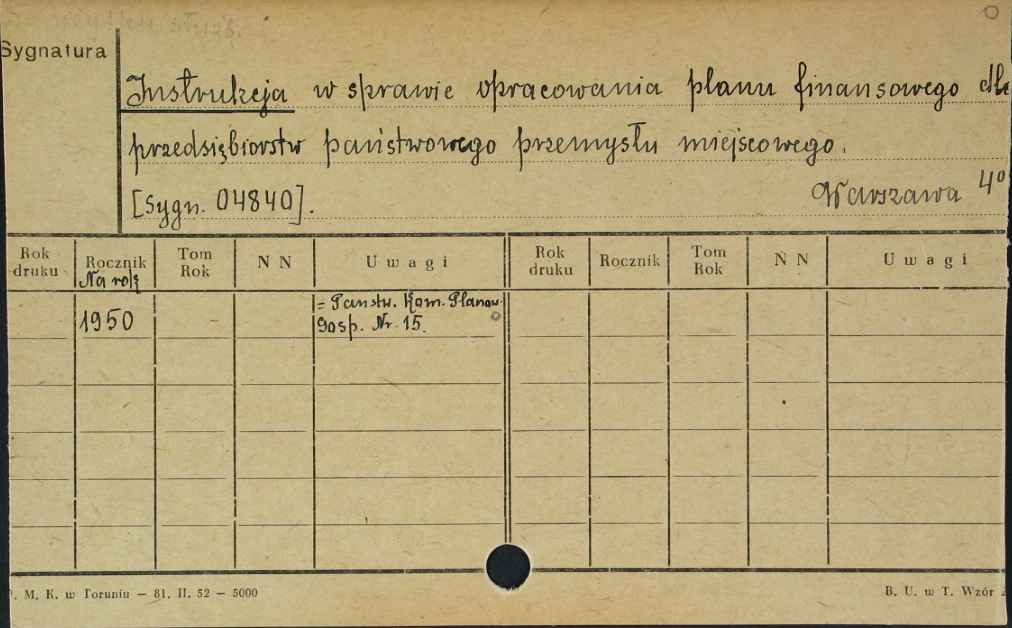 Sygnatura
Instrukcja w sprawie opracowania planu finansowego dla
przedsiębiorstw państwowego przemysłu miejscowego.
[Sygn. 04840]. Warszawa 4°
Rok druku Rocznik Tom Rok N N Uwagi Rok druku Rocznik Tom Rok N N Uwagi
Na rok
1950 = Państw. Kom. Planow.
Gosp. Nr. 15.
. M. K. w Toruniu — 81. II. 52 — 5000 B. U. w T. Wzór